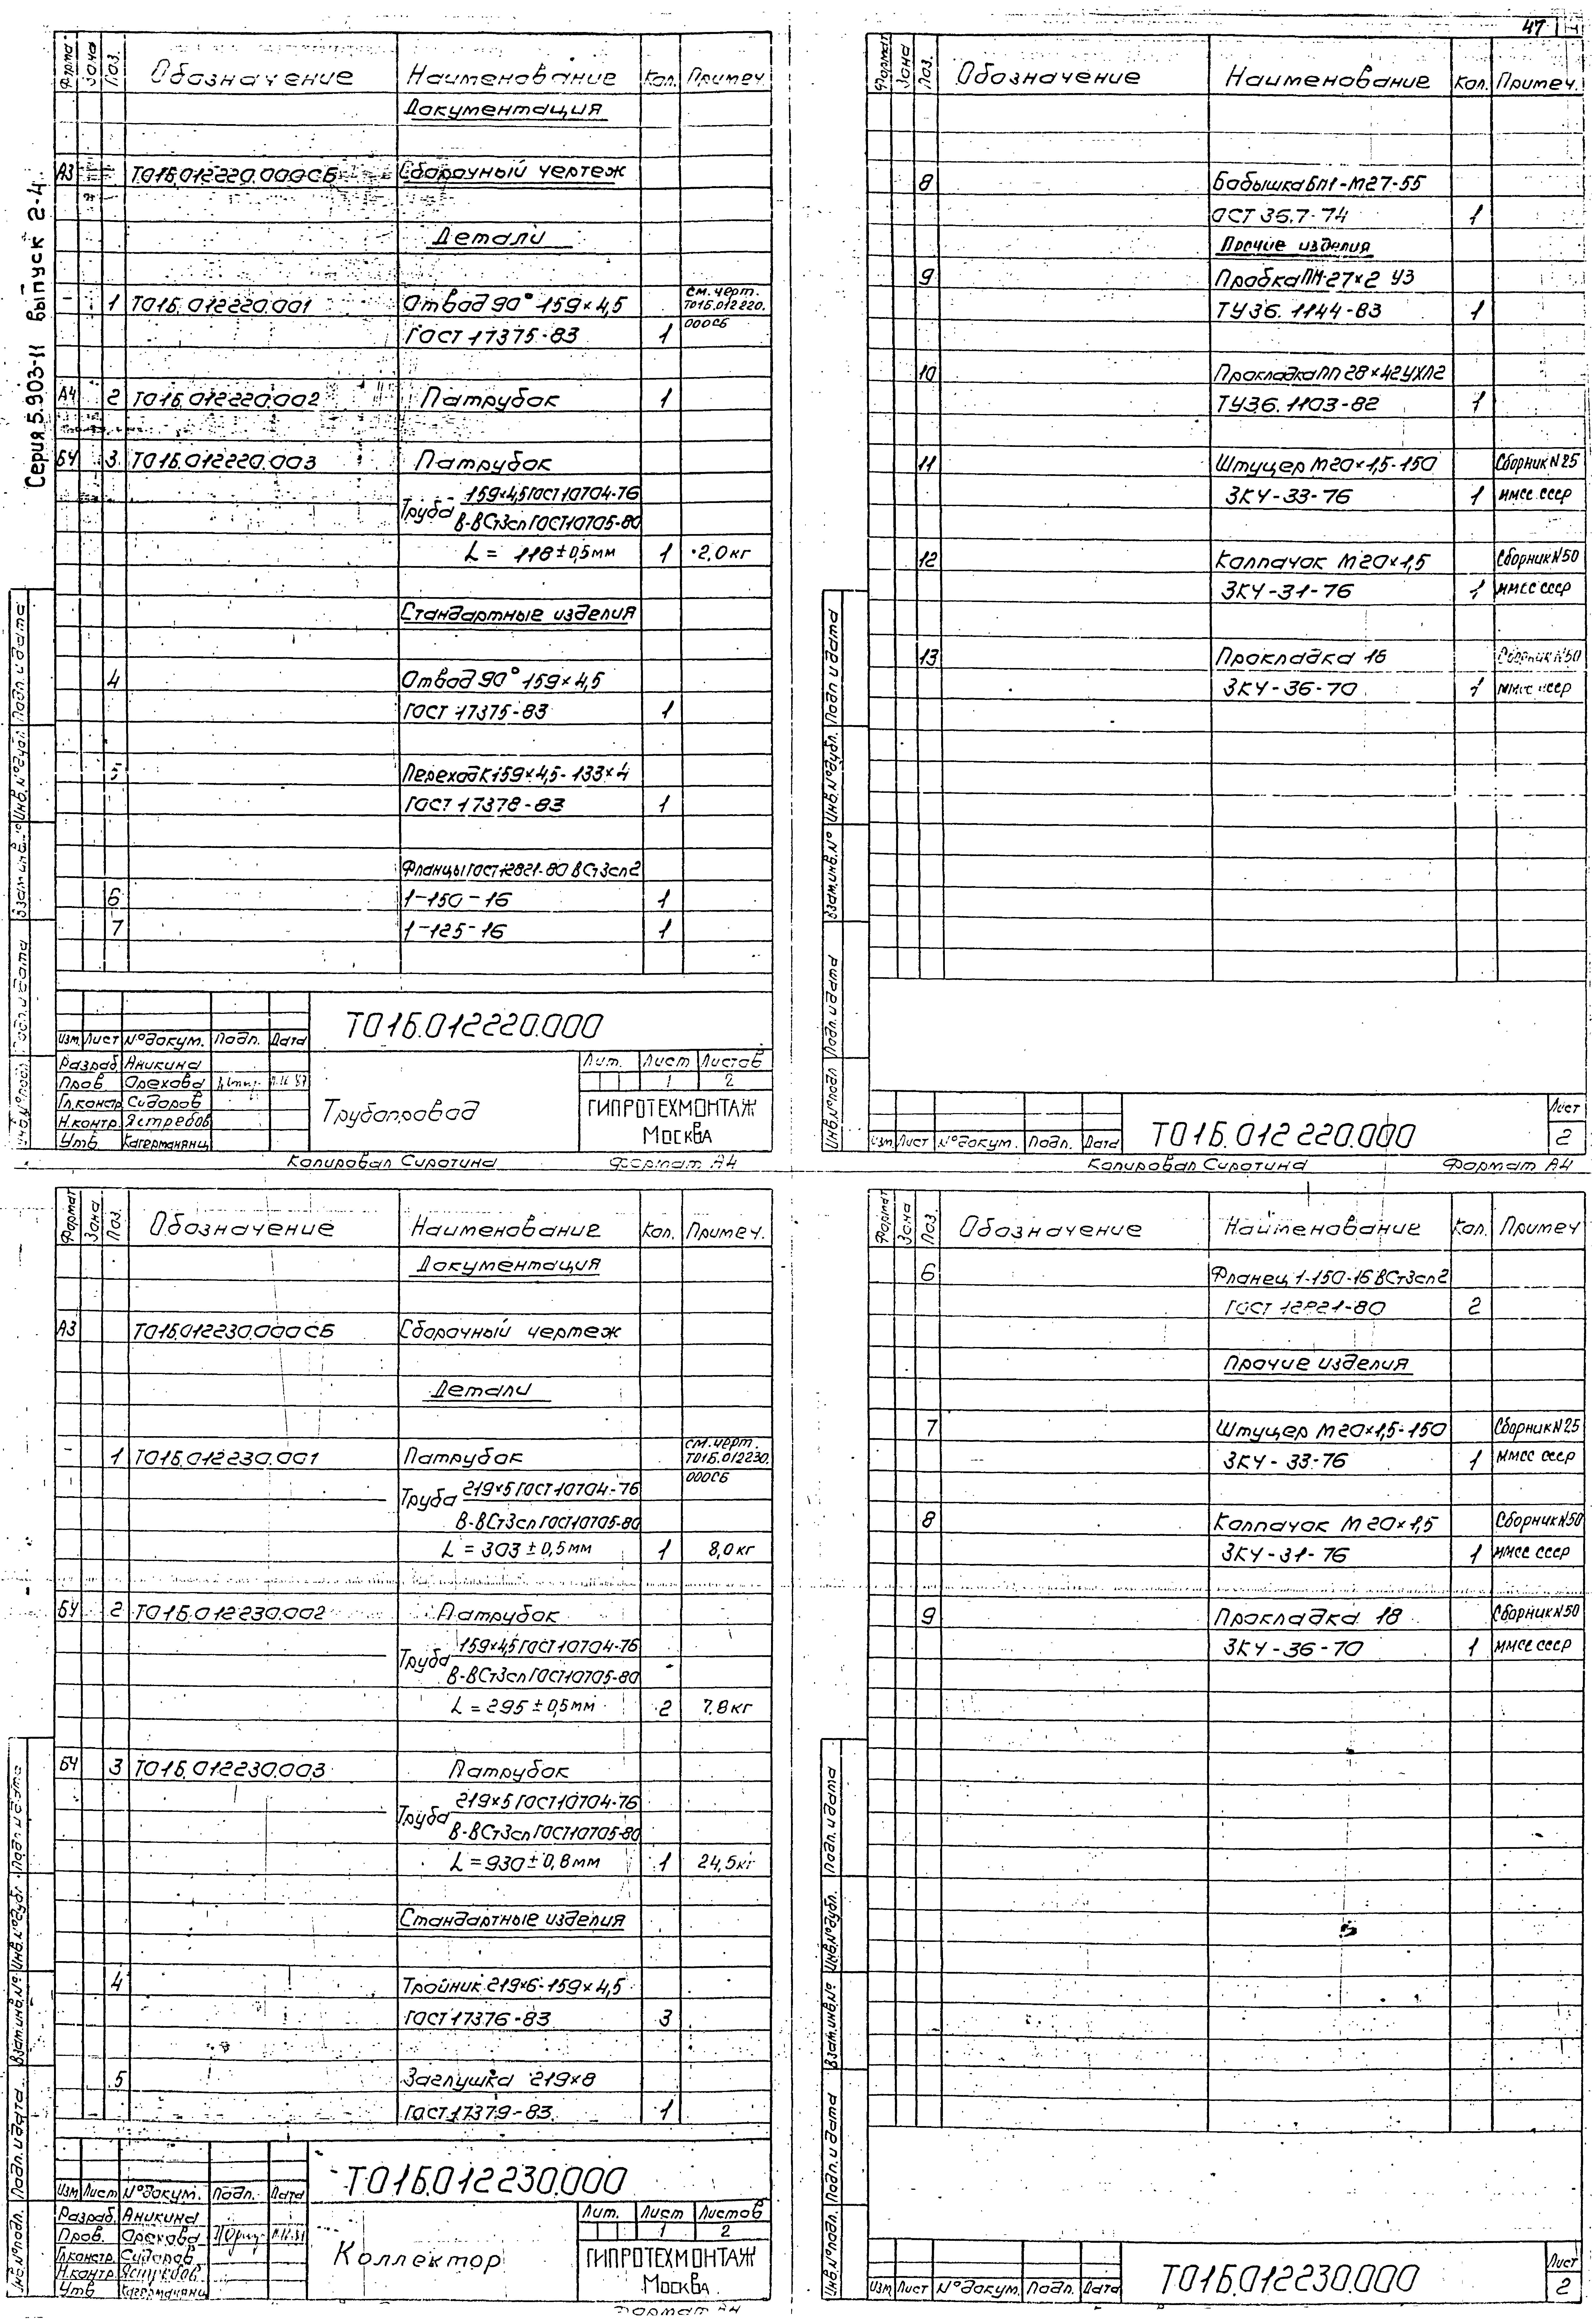 47
Серия 5.903-11 выпуск 2-4
Формат Зона Поз. Обозначение Наименование Кол. Примеч.
Документация
А3 Т01Б.012220.000СБ Сборочный чертеж
Детали
1 Т01Б.012220.001 Отвод 90° 159×4,5 см. черт. Т01Б.012220.
ГОСТ 17375-83 1 000СБ
А4 2 Т01Б.012220.002 Патрубок 1
БЧ 3 Т01Б.012220.003 Патрубок
Труба 159×4,5 ГОСТ 10704-76
В-ВСт3сп ГОСТ 10705-80
L = 118±0,5мм 1 2,0кг
Стандартные изделия
4 Отвод 90° 159×4,5
ГОСТ 17375-83 1
5 Переход К159×4,5-133×4
ГОСТ 17378-83 1
Фланцы ГОСТ 12821-80 ВСт3сп2
6 1-150-16 1
7 1-125-16 1
Т01Б.012220.000
Изм. Лист №докум. Подп. Дата
Разраб. Аникина
Пров. Орехова
Гл.констр. Сидоров
Н.контр. Ястребов
Утв.
Трубопровод
Лит. Лист Листов
1 2
ГИПРОТЕХМОНТАЖ
Москва
Инв.№подл. Подп. и дата Взам.инв.№ Инв.№дубл. Подп. и дата
Копировал Сиротина Формат А4
Формат Зона Поз. Обозначение Наименование Кол. Примеч.
8 Бобышка БП1-М27-55
ОСТ 36.7-74 1
Прочие изделия
9 Пробка ПМ-27×2 У3
ТУ36.1144-83 1
10 Прокладка ПП 28×42УХЛ2
ТУ36.1103-82 1
11 Штуцер М20×1,5-150 Сборник N25
ЗКЧ-33-76 1 ММСС СССР
12 Колпачок М20×1,5 Сборник N50
ЗКЧ-31-76 1 ММСС СССР
13 Прокладка 16 Сборник N50
ЗКЧ-36-70 1 ММСС СССР
Инв.№подл. Подп. и дата Взам.инв.№ Инв.№дубл. Подп. и дата
Изм. Лист №докум. Подп. Дата
Т01Б.012220.000
Лист
2
Копировал Сиротина Формат А4
Формат Зона Поз. Обозначение Наименование Кол. Примеч.
Документация
А3 Т01Б.012230.000СБ Сборочный чертеж
Детали
1 Т01Б.012230.001 Патрубок см. черт. Т01Б.012230.
000СБ
Труба 219×5 ГОСТ 10704-76
В-ВСт3сп ГОСТ 10705-80
L = 303±0,5мм 1 8,0кг
БЧ 2 Т01Б.012230.002 Патрубок
Труба 159×4,5 ГОСТ 10704-76
В-ВСт3сп ГОСТ 10705-80
L = 295±0,5мм 2 7,8кг
БЧ 3 Т01Б.012230.003 Патрубок
Труба 219×5 ГОСТ 10704-76
В-ВСт3сп ГОСТ 10705-80
L = 930±0,8мм 1 24,5кг
Стандартные изделия
4 Тройник 219×6-159×4,5
ГОСТ 17376-83 3
5 Заглушка 219×8
ГОСТ 17379-83 1
Т01Б.012230.000
Изм. Лист №докум. Подп. Дата
Разраб. Аникина
Пров. Орехова
Гл.констр. Сидоров
Н.контр.
Утв.
Коллектор
Лит. Лист Листов
1 2
ГИПРОТЕХМОНТАЖ
Москва
Инв.№подл. Подп. и дата Взам.инв.№ Инв.№дубл. Подп. и дата
Формат А4
Формат Зона Поз. Обозначение Наименование Кол. Примеч
6 Фланец 1-150-16 ВСт3сп2
ГОСТ 12821-80 2
Прочие изделия
7 Штуцер М20×1,5-150 Сборник N25
ЗКЧ-33-76 1 ММСС СССР
8 Колпачок М20×1,5 Сборник N50
ЗКЧ-31-76 1 ММСС СССР
9 Прокладка 18 Сборник N50
ЗКЧ-36-70 1 ММСС СССР
Инв.№подл. Подп. и дата Взам.инв.№ Инв.№дубл. Подп. и дата
Изм. Лист №докум. Подп. Дата
Т01Б.012230.000
Лист
2